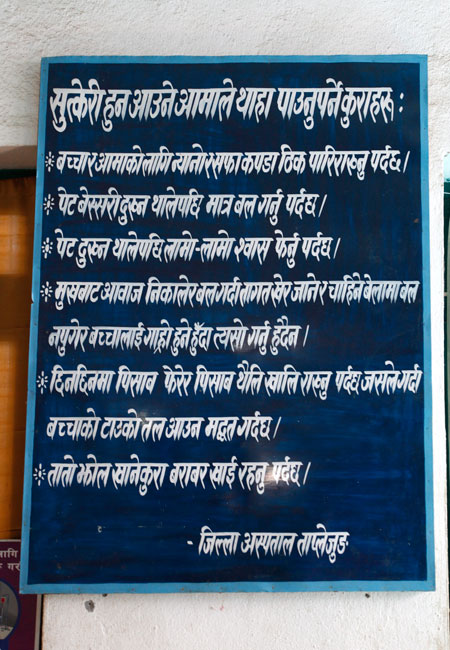 सुत्केरी हुन आउने आमाले थाहा पाउनुपर्ने कुराहरू :
* बच्चार आमाको लागि न्यानो र सफा कपडा ठिक पारिराख्नु पर्दछ।
* पेट बेस्सरी दुख्न थालेपछि मात्र बल गर्नु पर्दछ।
* पेट दुख्न थालेपछि लामो-लामो श्वास फेर्नु पर्दछ।
* मुखबाट आवाज निकालेर बल गर्दा तागत खेर जाने र चाहिने बेलामा बल
नपुगेर बच्चालाई गाह्रो हुने हुँदा त्यसो गर्नु हुँदैन।
* छिनछिनमा पिसाब फेरेर पिसाब थैलि खालि राख्नु पर्दछ जसले गर्दा
बच्चाको टाउको तल आउन मद्धत गर्दछ।
* तातो झोल खानेकुरा बराबर खाई रहनु पर्दछ।
- जिल्ला अस्पताल ताप्लेजुङ
लागि